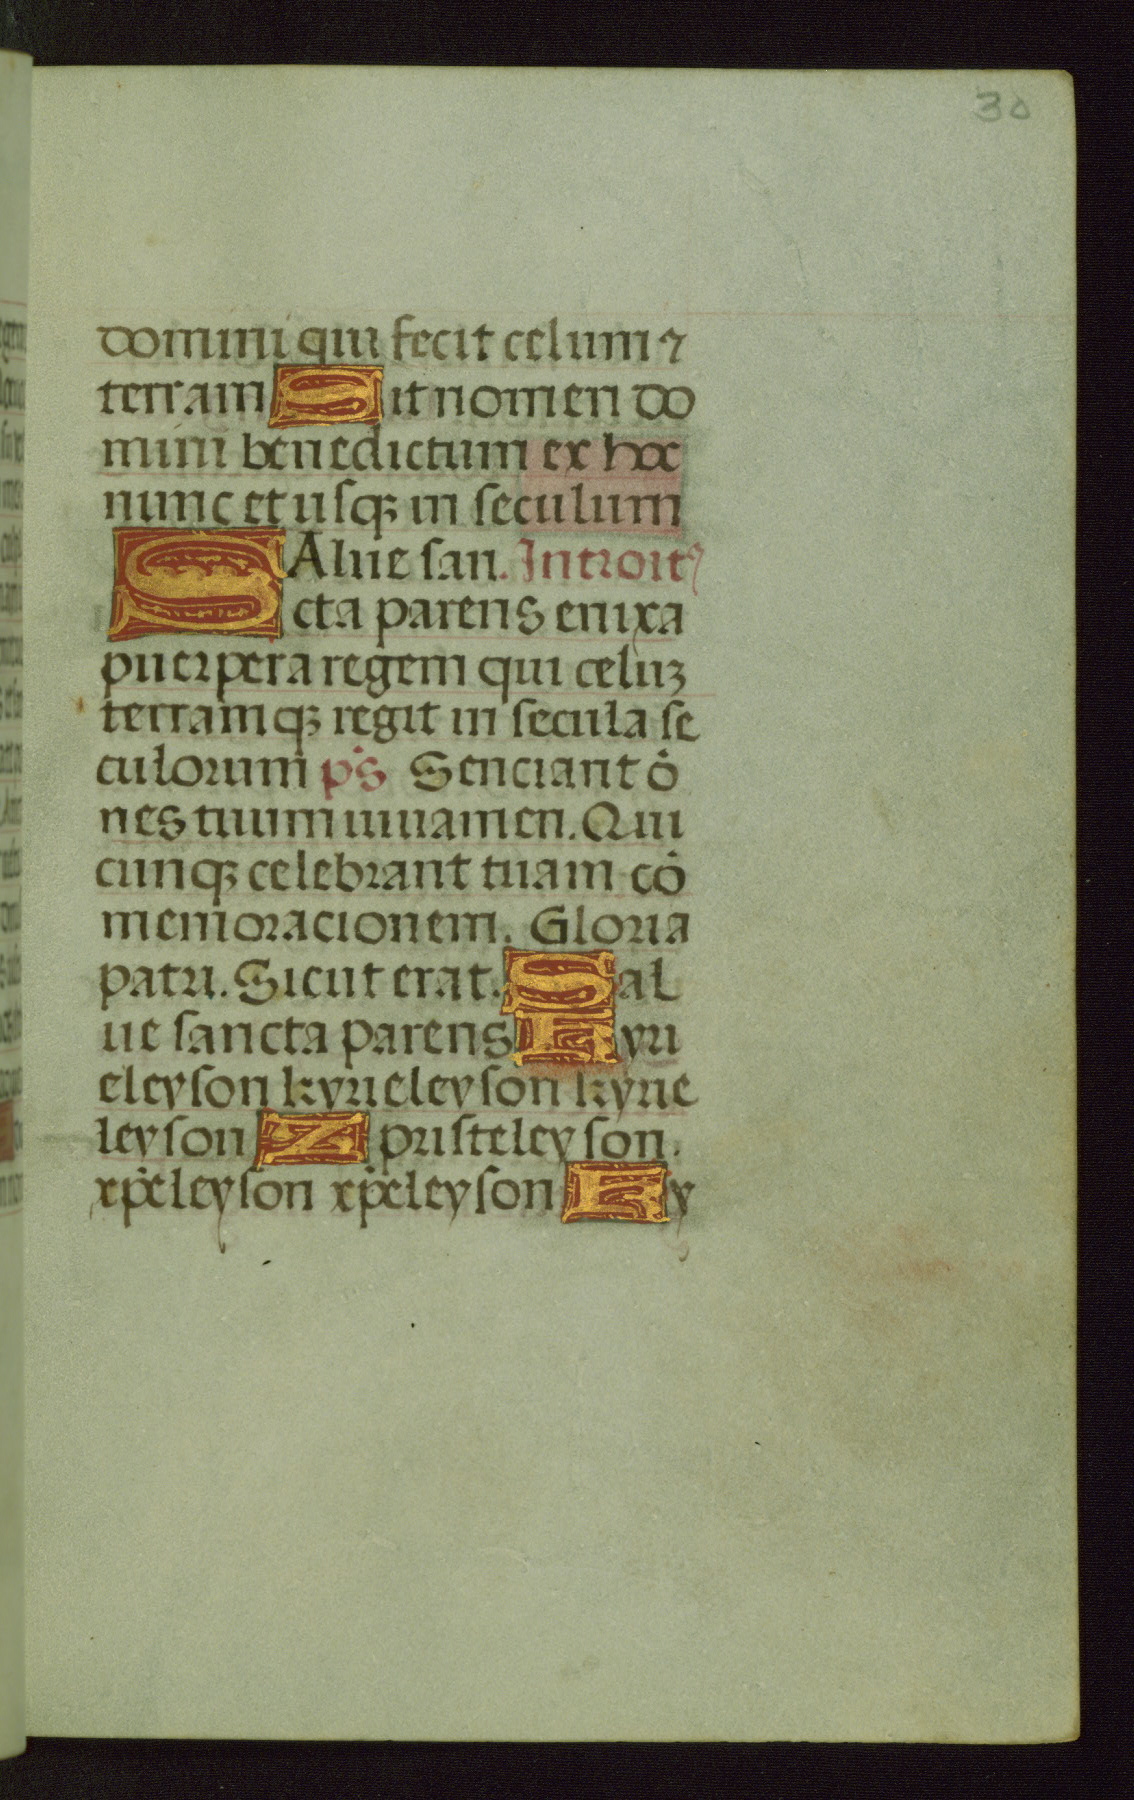 30
domini qui fecit celum ⁊
terram Sit nomen do
mini benedictum ex hoc
nunc et usqꝫ in seculum
SAlue san. Introitꝰ
cta parens enixa
puerpera regem qui celuꝫ
terramqꝫ regit in secula se
culorum p̄s Senciant ō
nes tuum iuuamen. Qui
cunqꝫ celebrant tuam cō
memoracionem. Gloria
patri. Sicut erat. Sal
ue sancta parens Kyri
eleyson kyrieleyson kyrie
leyson Xpristeleyson.
xp̄eleyson xp̄eleyson Ky